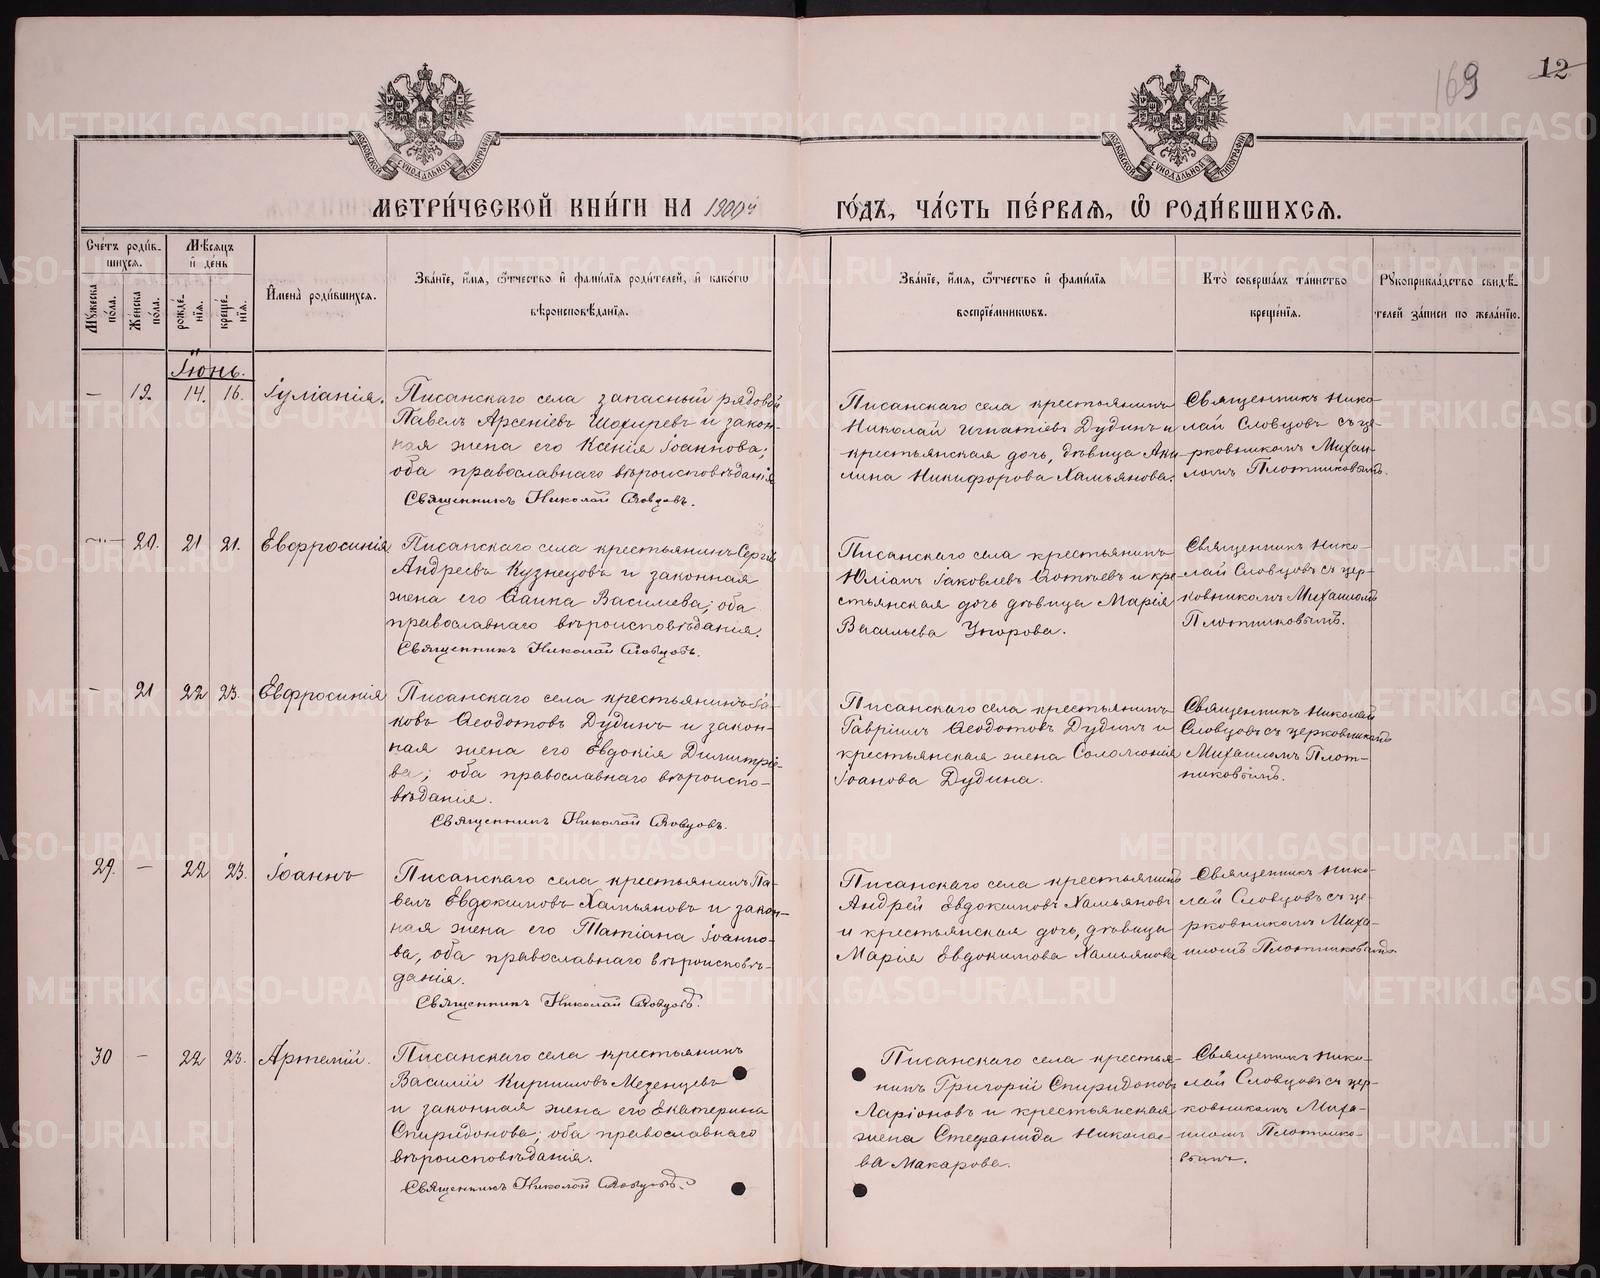 169
12
МЕТРИ́ЧЕСКОЙ КНИ́ГИ НА 1900й ГО́ДЪ, ЧА́СТЬ ПЕ́РВАЯ, Ѽ РОДИ́ВШИХСЯ.
Сче́тъ роди́в-
шихся.
Мѣ́сяцъ
и҆ де́нь
Мꙋ́жеска
по́ла.
Же́нска
по́ла.
рожде́-
нїя.
креще́-
нїя.
И҆мена̀ роди́вшихся.
Зва́нїе, и҆́мя, ѻ҆́тчество и҆ фами́лїя роди́телей, и҆ како́гѡ
вѣроисповѣ́данїя.
Зва́нїе, и҆́мя, ѻ҆́тчество и҆ фами́лїя
воспрїе́мникѡвъ.
Кто̀ соверша́лъ та́инство
креще́нїя.
Рꙋкоприкла́дство свидѣ́-
телей за́писи по жела́нїю.
Іюнь.
— 19. 14. 16. Іуліанія.
Писанскаго села запасный рядовой
Павелъ Арсеніевъ и закон-
ная жена его Ксенія Іоаннова;
оба православнаго вѣроисповѣданія
Священникъ Николай Словцовъ.
Писанскаго села крестьянинъ
Николай Игнатіевъ Дудинъ и
крестьянская дочь, дѣвица Аку-
лина Никифорова Хамьянова.
Священникъ Нико-
лай Словцовъ съ це-
рковникомъ Михаи-
ломъ Плотниковымъ.
— 20. 21 21. Евфросинія
Писанскаго села крестьянинъ Сергій
Андреевъ Кузнецовъ и законная
жена его Анна Василиева; оба
православнаго вѣроисповѣданія.
Священникъ Николай Словцовъ.
Писанскаго села крестьянинъ
Юліанъ Іаковлевъ и кре-
стьянская дочь дѣвица Марія
Васильева Упорова.
Священникъ Нико-
лай Словцовъ съ цер-
ковникомъ Михаиломъ
Плотниковымъ.
— 21 22 23. Евфросинія
Писанскаго села крестьянинъ Іа-
ковъ Ѳеодотовъ Дудинъ и закон-
ная жена его Евдокія Димитріе-
ва; оба православнаго вѣроиспо-
вѣданія.
Священникъ Николай Словцовъ.
Писанскаго села крестьянинъ
Гавріилъ Ѳеодотовъ Дудинъ и
крестьянская жена Соломонія
Іоанова Дудина.
Священникъ Николай
Словцовъ съ церковникомъ
Михаиломъ Плот-
никовымъ.
29. — 22 23. Іоаннъ
Писанскаго села крестьянинъ Па-
велъ Евдокимовъ Хамьяновъ и закон-
ная жена его Татіана Іоанно-
ва, оба православнаго вѣроисповѣ-
данія.
Священникъ Николай Словцовъ.
Писанскаго села крестьянинъ
Андрей Евдокимовъ Хамьяновъ
и крестьянская дочь, дѣвица
Марія Евдокимова Хамьянова
Священникъ Нико-
лай Словцовъ съ це-
рковникомъ Миха-
иломъ Плотниковымъ.
30 — 22 23. Артемій.
Писанскаго села крестьянинъ
Василій Кирилловъ Мезенцевъ
и законная жена его Екатерина
Спиридонова; оба православнаго
вѣроисповѣданія.
Священникъ Николай Словцовъ.
Писанскаго села крестья-
нинъ Григорій Спиридоновъ
Ларіоновъ и крестьянская
жена Стефанида Николае-
ва Макарова.
Священникъ Нико-
лай Словцовъ съ цер-
ковникомъ Миха-
иломъ Плотнико-
вымъ.
METRIKI.GASO-URAL.RU